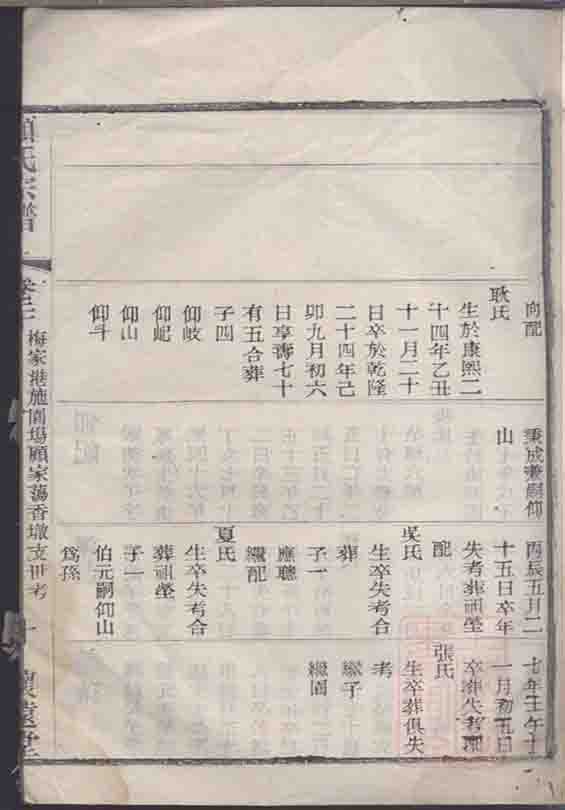 顧氏宗譜
卷之
梅家港施園場顧家蕩香墩支世考
一
懷遠堂
向配
耿氏
生於康熙二
十四年乙丑
十一月二十
日卒於乾隆
二十四年己
卯九月初六
日享壽七十
有五合葬
子四
仰岐
仰屺
仰山
仰斗
秉成兼嗣仰
山
丙辰五月二
十五日卒年
失考葬祖塋
配
吳氏
生卒失考合
葬
子一
應聰
繼配
夏氏
生卒失考合
葬祖塋
子一
伯元嗣仰山
為孫
七年壬午十
一月初九日
卒葬失考
張氏
生卒葬俱失
考
繼子
繼園